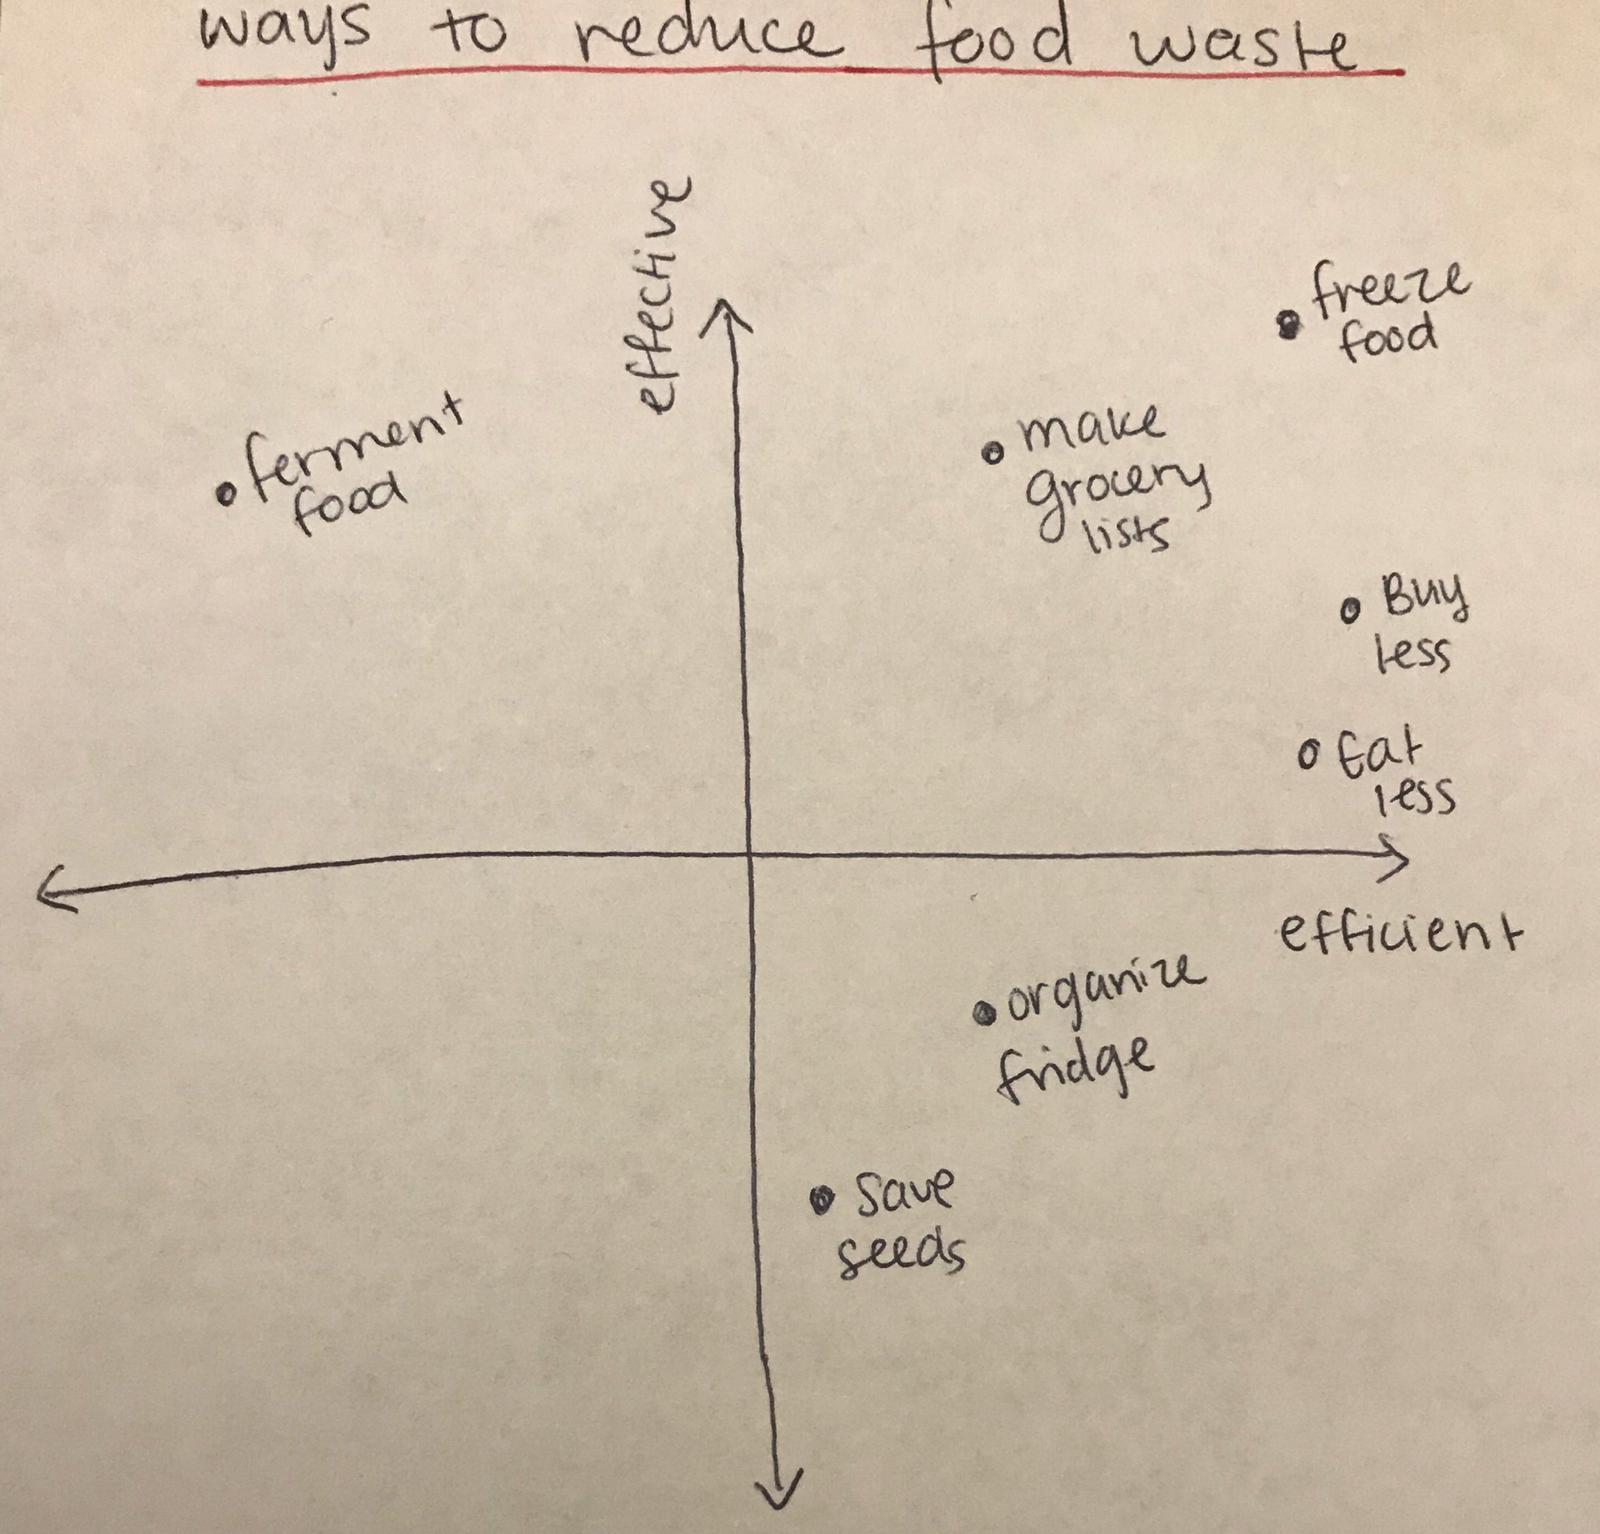 ways to reduce food waste
effective
freeze
food
ferment
food
make
grocery
lists
Buy
less
Eat
less
efficient
organize
fridge
save
seeds